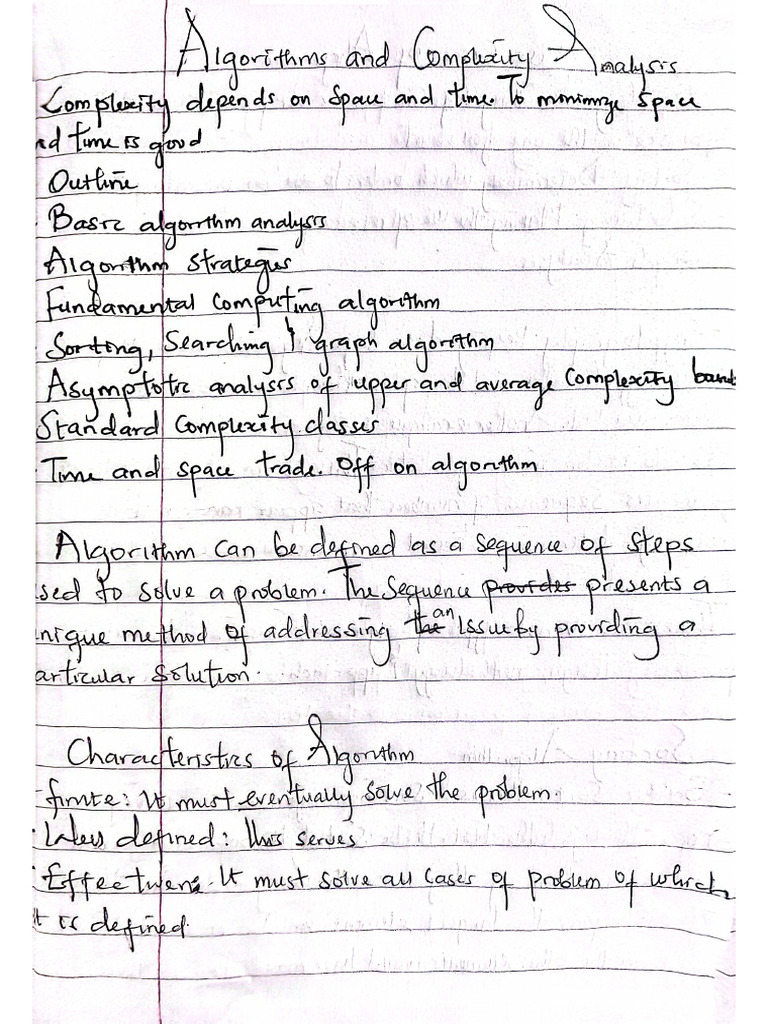 Algorithms and Complexity Analysis
Complexity depends on space and time. To minimize space
nd time is good
Outline
· Basic algorithm analysis
Algorithm strategies
Fundamental computing algorithm
· Sorting, Searching & graph algorithm
Asymptotic analysis of upper and average complexity band
Standard Complexity classes
· Time and space trade. Off on algorithm
Algorithm can be defined as a sequence of steps
sed to solve a problem. The sequence provides presents a
nique method of addressing the an issue by providing a
articular solution.
Characteristics of Algorithm
· finite: It must eventually solve the problem.
· defined: this serves
· Effectiveness. It must solve all cases of problem of which
it is defined.